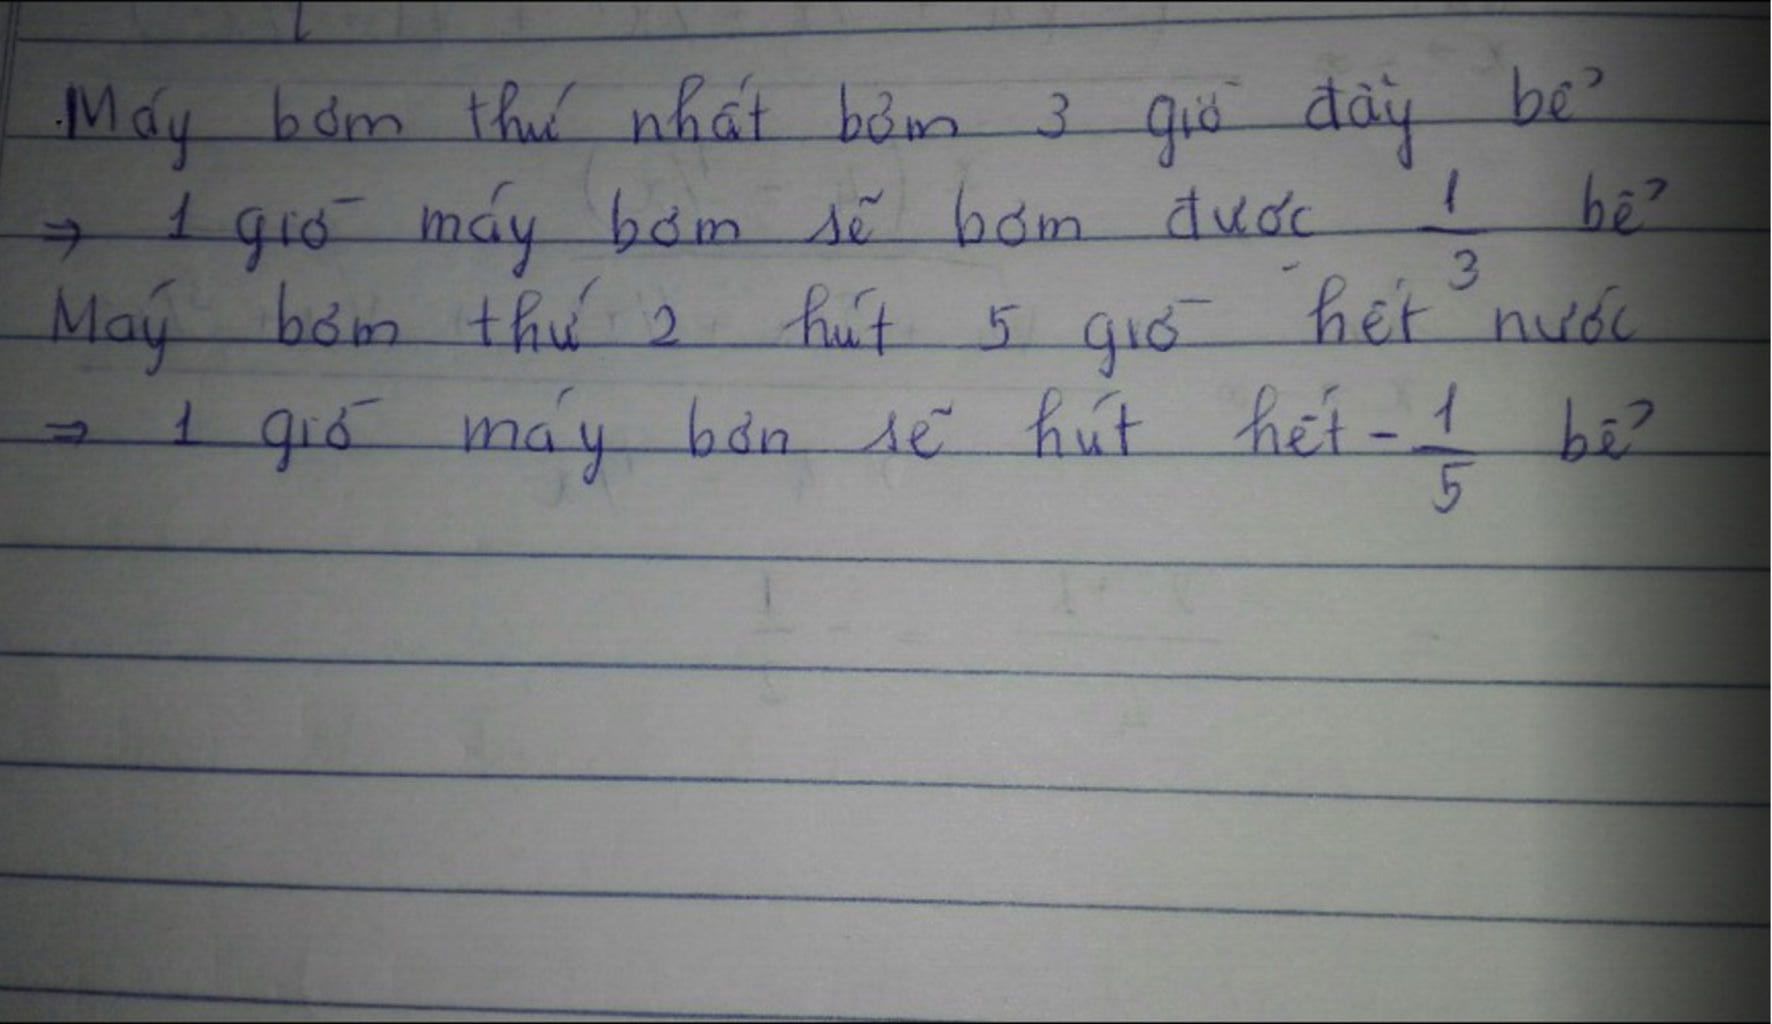 Máy bơm thứ nhất bơm 3 giờ đầy bể
⇒ 1 giờ máy bơm sẽ bơm được 1/3 bể
Máy bơm thứ 2 hút 5 giờ hết nước
⇒ 1 giờ máy bơn sẽ hút hết - 1/5 bể